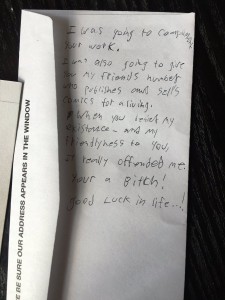 I was going to compliment
your work.
I was also going to give
you my friends number
who publishes and sells
comics for a living.
When you denied my
existence - and my
friendlyness to you,
it really offended me.
Your a Bitch!
Good Luck in life...!
BE SURE OUR ADDRESS APPEARS IN THE WINDOW